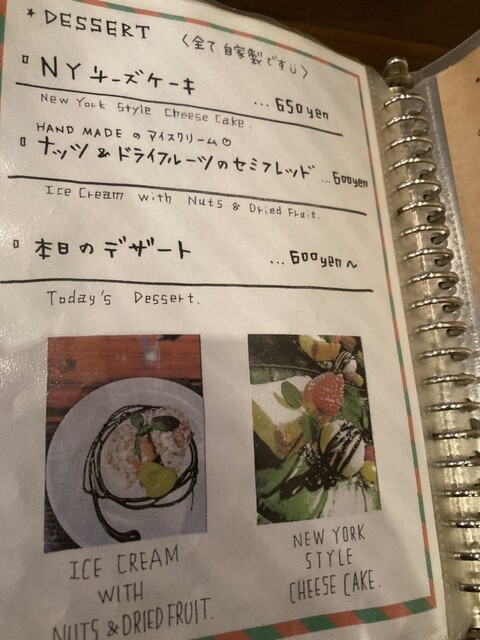 * DESSERT 〈全て自家製です〉
NYチーズケーキ ... 650yen
New York Style Cheese Cake.
HAND MADE のアイスクリーム
ナッツ&ドライフルーツのセミフレッド ...600yen
Ice Cream with Nuts & Dried Fruit.
本日のデザート ... 600yen~
Today's Dessert.
ICE CREAM
WITH
NUTS & DRIED FRUIT.
NEW YORK
STYLE
CHEESE CAKE.